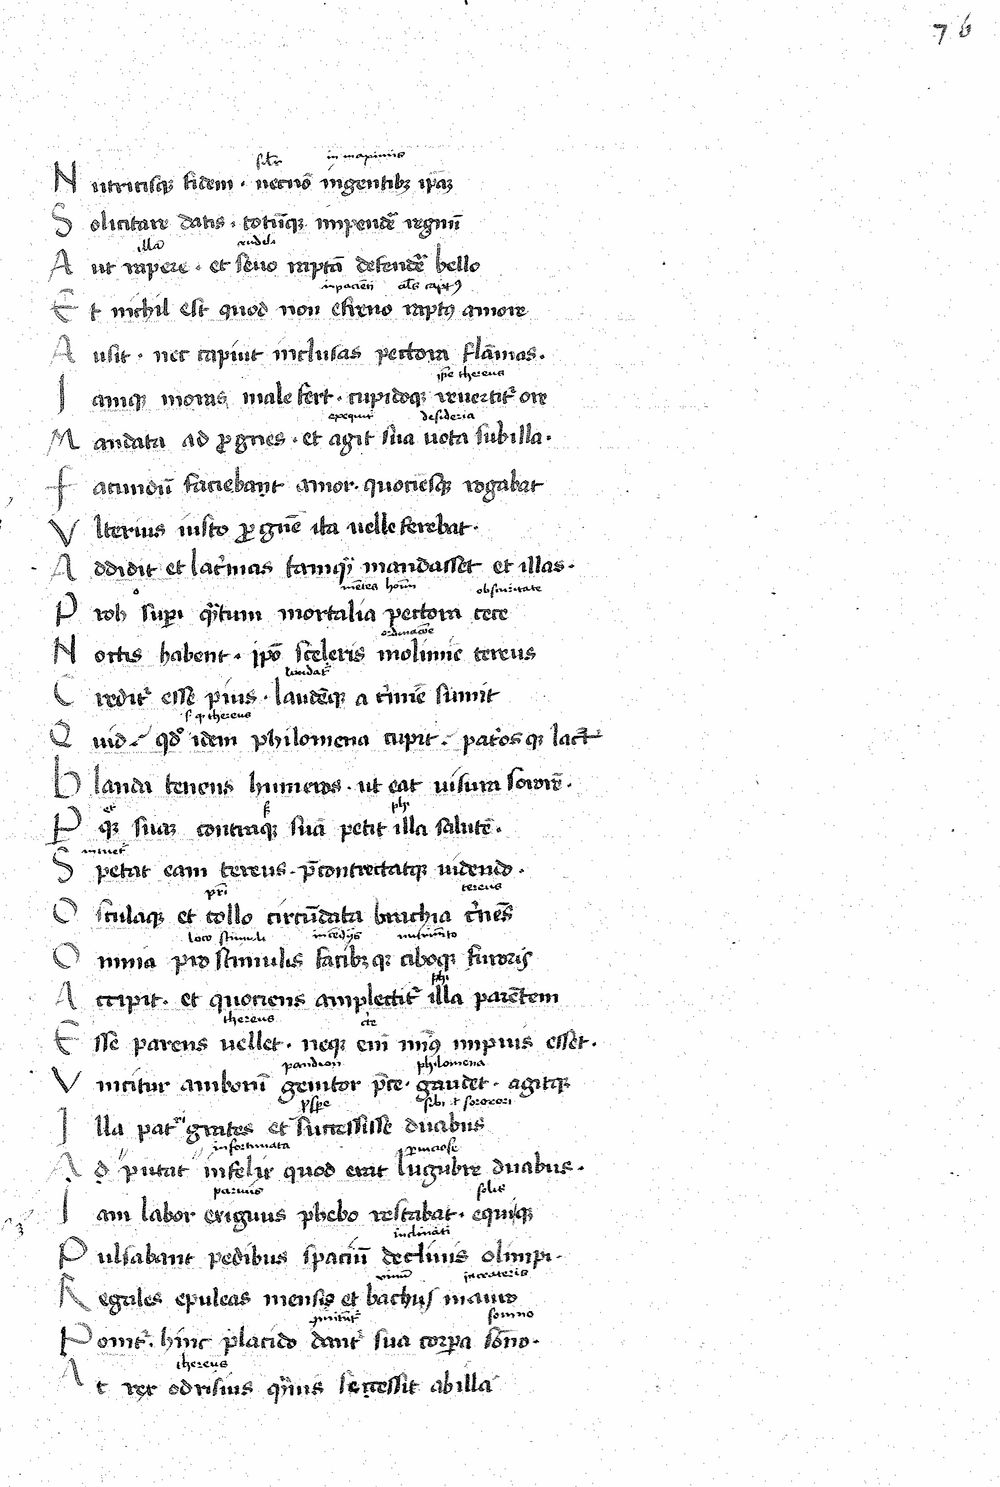 76
silr in maximis
Nutricisq; fidem · necnō ingentib; ip̄aꝫ
Solicitare datis · totūq; impendē regnū
illā crudeli
Aut rapere · et seuo raptā defendē bello
inpaciēti
Et nichil est quod non efreno rapt9 amore
Ausit · nec capiut inclusas pectora flāmas .
ipse thereus
Iamq; moras male fert · cupidoq; reuertit᷑ ore
exequit desideria
Mandata ad ꝓgnes · et agit sua uota sub illa .
Facundū faciebant amor · quociēsq; rogabat
Vlterius iusto ꝓgnē ita uelle ferebat .
Addidit et lac᷑mas tamq̄ mandasset et illas .
mētes hoīm obscuritate
Proh supi q̄tum mortalia pectora cece
Noctis habent · ip̄o sceleris molimīe tereus
laudat᷑
Credit᷑ esse pius · laudēq; a c᷑mīe sumit
thereus
Quid · qd̄ idem philomena cupit · pat᷑osq; lac᷑t
Blanda tenens humeros · ut eat uisura sororē .
et phi
Pq; suaꝫ contraq; suā petit illa salutē .
intuet᷑
Spetat eam tereus · p̄contrectatq; uidendo .
pri tereus
Osculaq; et collo circūdata brachia c᷑nēs
loco stimuli incēdijs nutrimēto
Omnia pro stimulis facib;q; ciboq; furoris
phi
Accipit · et quociens amplectit᷑ illa parētem
thereus
Esse parens uellet · neq; eni min9 impius esset .
pandion philomena
Vincitur amborū genitor p̄ce · gaudet · agitq;
ꝓspe sibi et sorori
Illa pat᷑ grates et successisse duabus
infortunata
Id putat infelix quod erit lugubre duabus .
paruus solis
Iam labor exiguus phebo restabat · equiq;
inclinati
Pulsabant pedibus spaciū decliuis olimpi .
vinū in crateris
Regales epuleas mensis et bachus in auro
somno
Ponit᷑ · hinc placido dant᷑ sua corpa sōno .
thereus
At rex odrisius q̄uis secessit ab illa